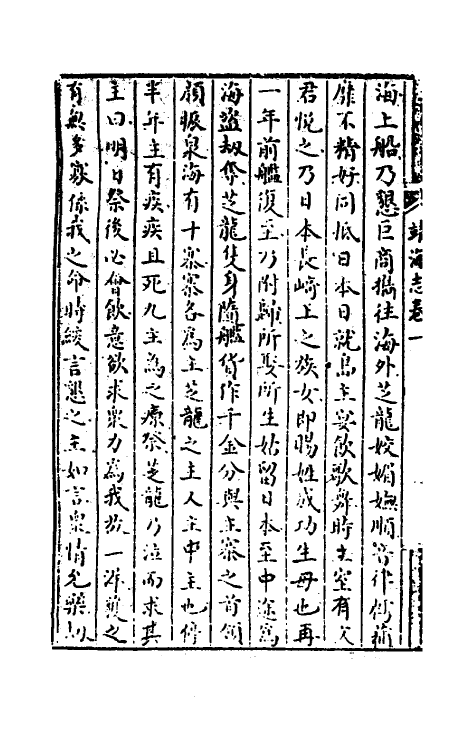 靖海志卷一
海上船乃懇巨商攜往海外芝龍姣媚嫵順吹彈歌舞樗蒲
靡不精好同抵日本日就島主宴飲歌舞時主室有文
君悅之乃日本長崎王之族女即賜姓成功生母也再
一年前艦復至乃附歸所娶所生姑留日本至中途為
海盜劫奪芝龍隻身隨艦貨作千金分與主寨之首領
頗振泉海有十寨寨各為主芝龍之主人主中主也停
半年主有疾疾且死九主為之療祭芝龍乃泣而求其
主曰明日祭後必會飲意欲求眾力為我放一游奠之
有無多寡係我之命時緩言懇之主如言眾情允樂劫